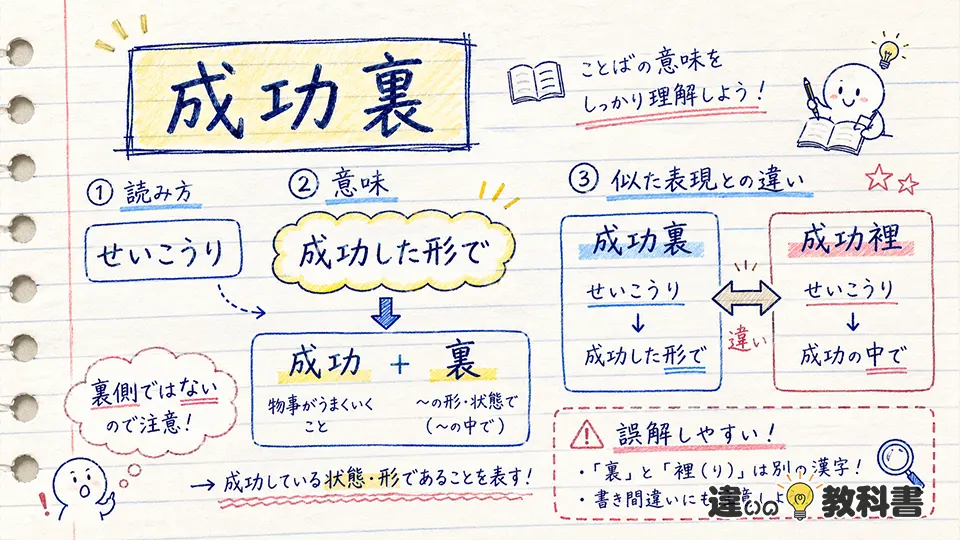 成功裏
ことばの意味を
しっかり理解しよう!
① 読み方
せいこうり
② 意味
成功した形で
成功 + 裏
物事がうまくいく
こと
~の形・状態で
(~の中で)
→ 成功している状態・形であることを表す!
裏側ではない
ので注意!
!
③ 似た表現との違い
成功裏
せいこうり
↓
成功した形で
違い
成功裡
せいこうり
↓
成功の中で
誤解しやすい!
・「裏」と「裡(り)」は別の漢字!
・書き間違いにも
違いの教科書